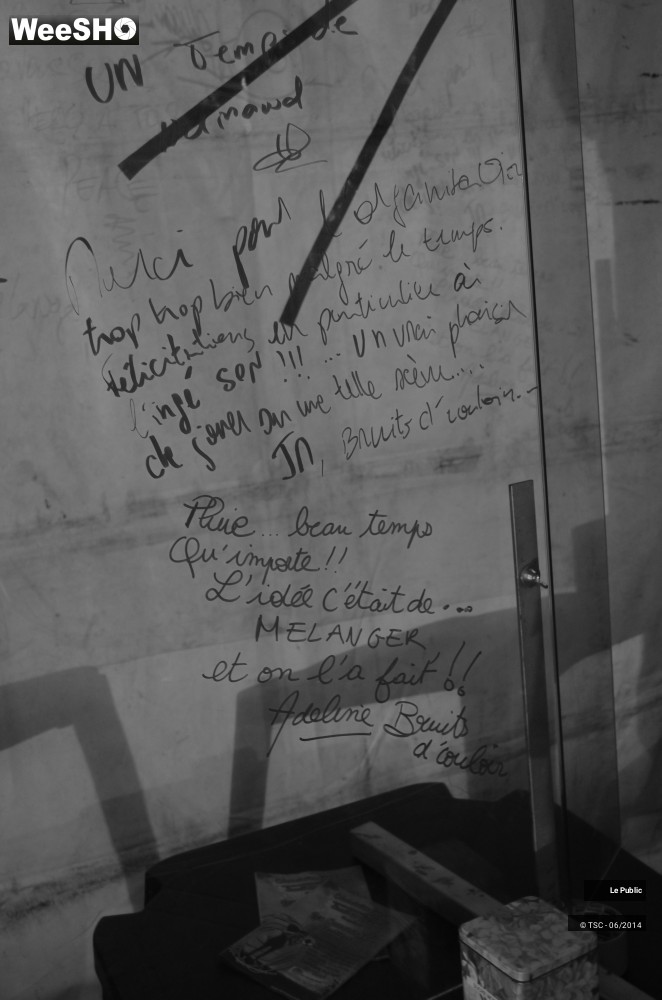 WeeSHO
UN Temps de
normand
Merci pour l'organisation
trop trop bien malgré le temps.
félicitations en particulier à
l'ingé son !!! ... Un vrai plaisir
de jouer sur une telle scène....
JM, Bruits d'couloir...
Pluie... beau temps
Qu'importe!!
L'idée c'était de...
MELANGER
et on l'a fait!!
Adeline Bruits
d'couloir
Le Public
© TSC - 06/2014